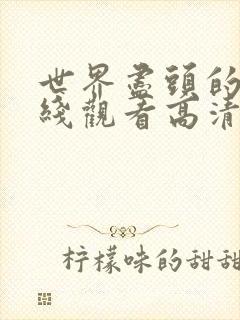 世界盡頭的
綫觀看高清
柠檬味的甜甜